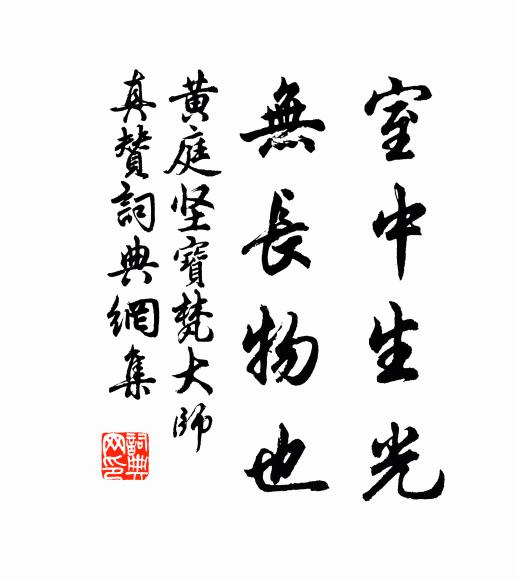 室中生光
無長物也
黄庭坚寶梵大師
真贊詞典網集
詞典網印